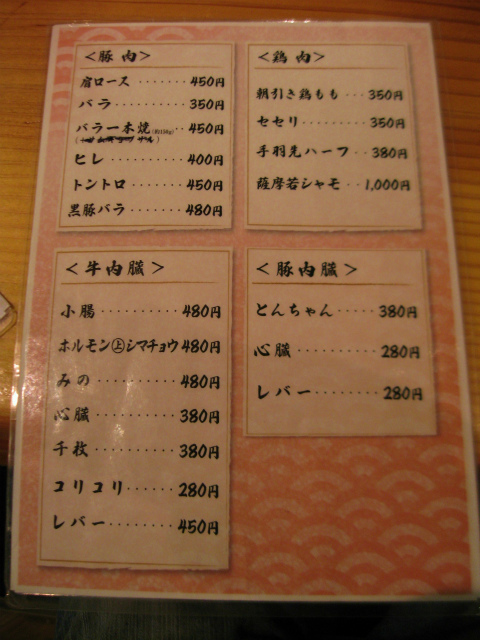 ＜豚肉＞
肩ロース‥‥‥‥450円
バラ‥‥‥‥350円
バラ一本焼(約150g)‥450円
ヒレ‥‥‥‥400円
トントロ‥‥‥‥450円
黒豚バラ‥‥‥‥480円
＜鶏肉＞
朝引き鶏もも‥‥350円
セセリ‥‥‥‥350円
手羽先ハーフ‥‥380円
薩摩若シャモ‥1,000円
＜牛内臓＞
小腸‥‥‥‥480円
ホルモン㊤シマチョウ480円
みの‥‥‥‥480円
心臓‥‥‥‥380円
千枚‥‥‥‥380円
コリコリ‥‥‥‥280円
レバー‥‥‥‥450円
＜豚内臓＞
とんちゃん‥‥‥380円
心臓‥‥‥‥280円
レバー‥‥‥‥280円